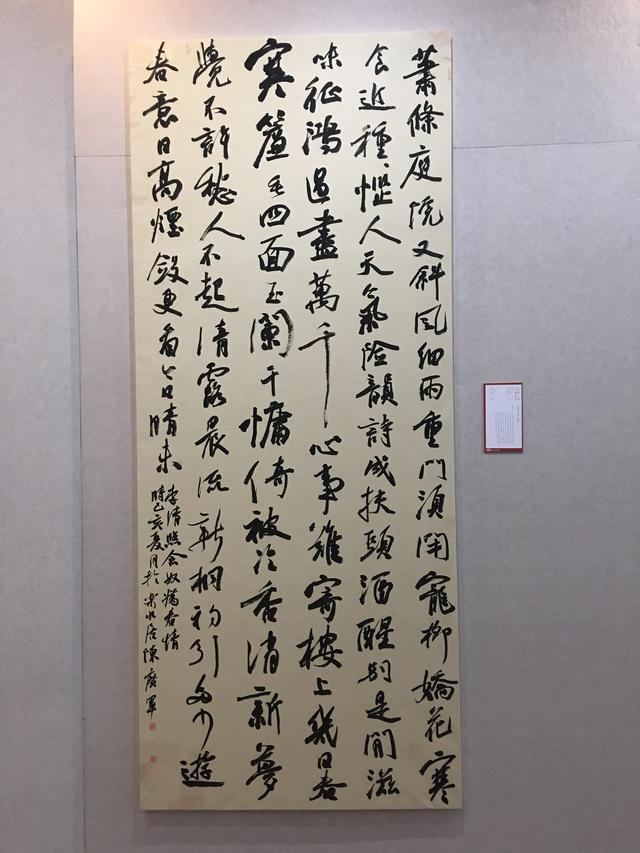 蕭條庭院又斜風細雨重門須閉寵柳嬌花寒
食近種、惱人天氣險韻詩成扶頭酒醒別是閒滋
味征鴻過盡萬千心事難寄樓上幾日春
寒簾垂四面玉闌干慵倚被冷香消新夢
覺不許愁人不起清露晨流新桐初引多少遊
春意日高煙斂更看今日晴未
李清照念奴嬌春情
時己亥夏月於水居陳廣軍